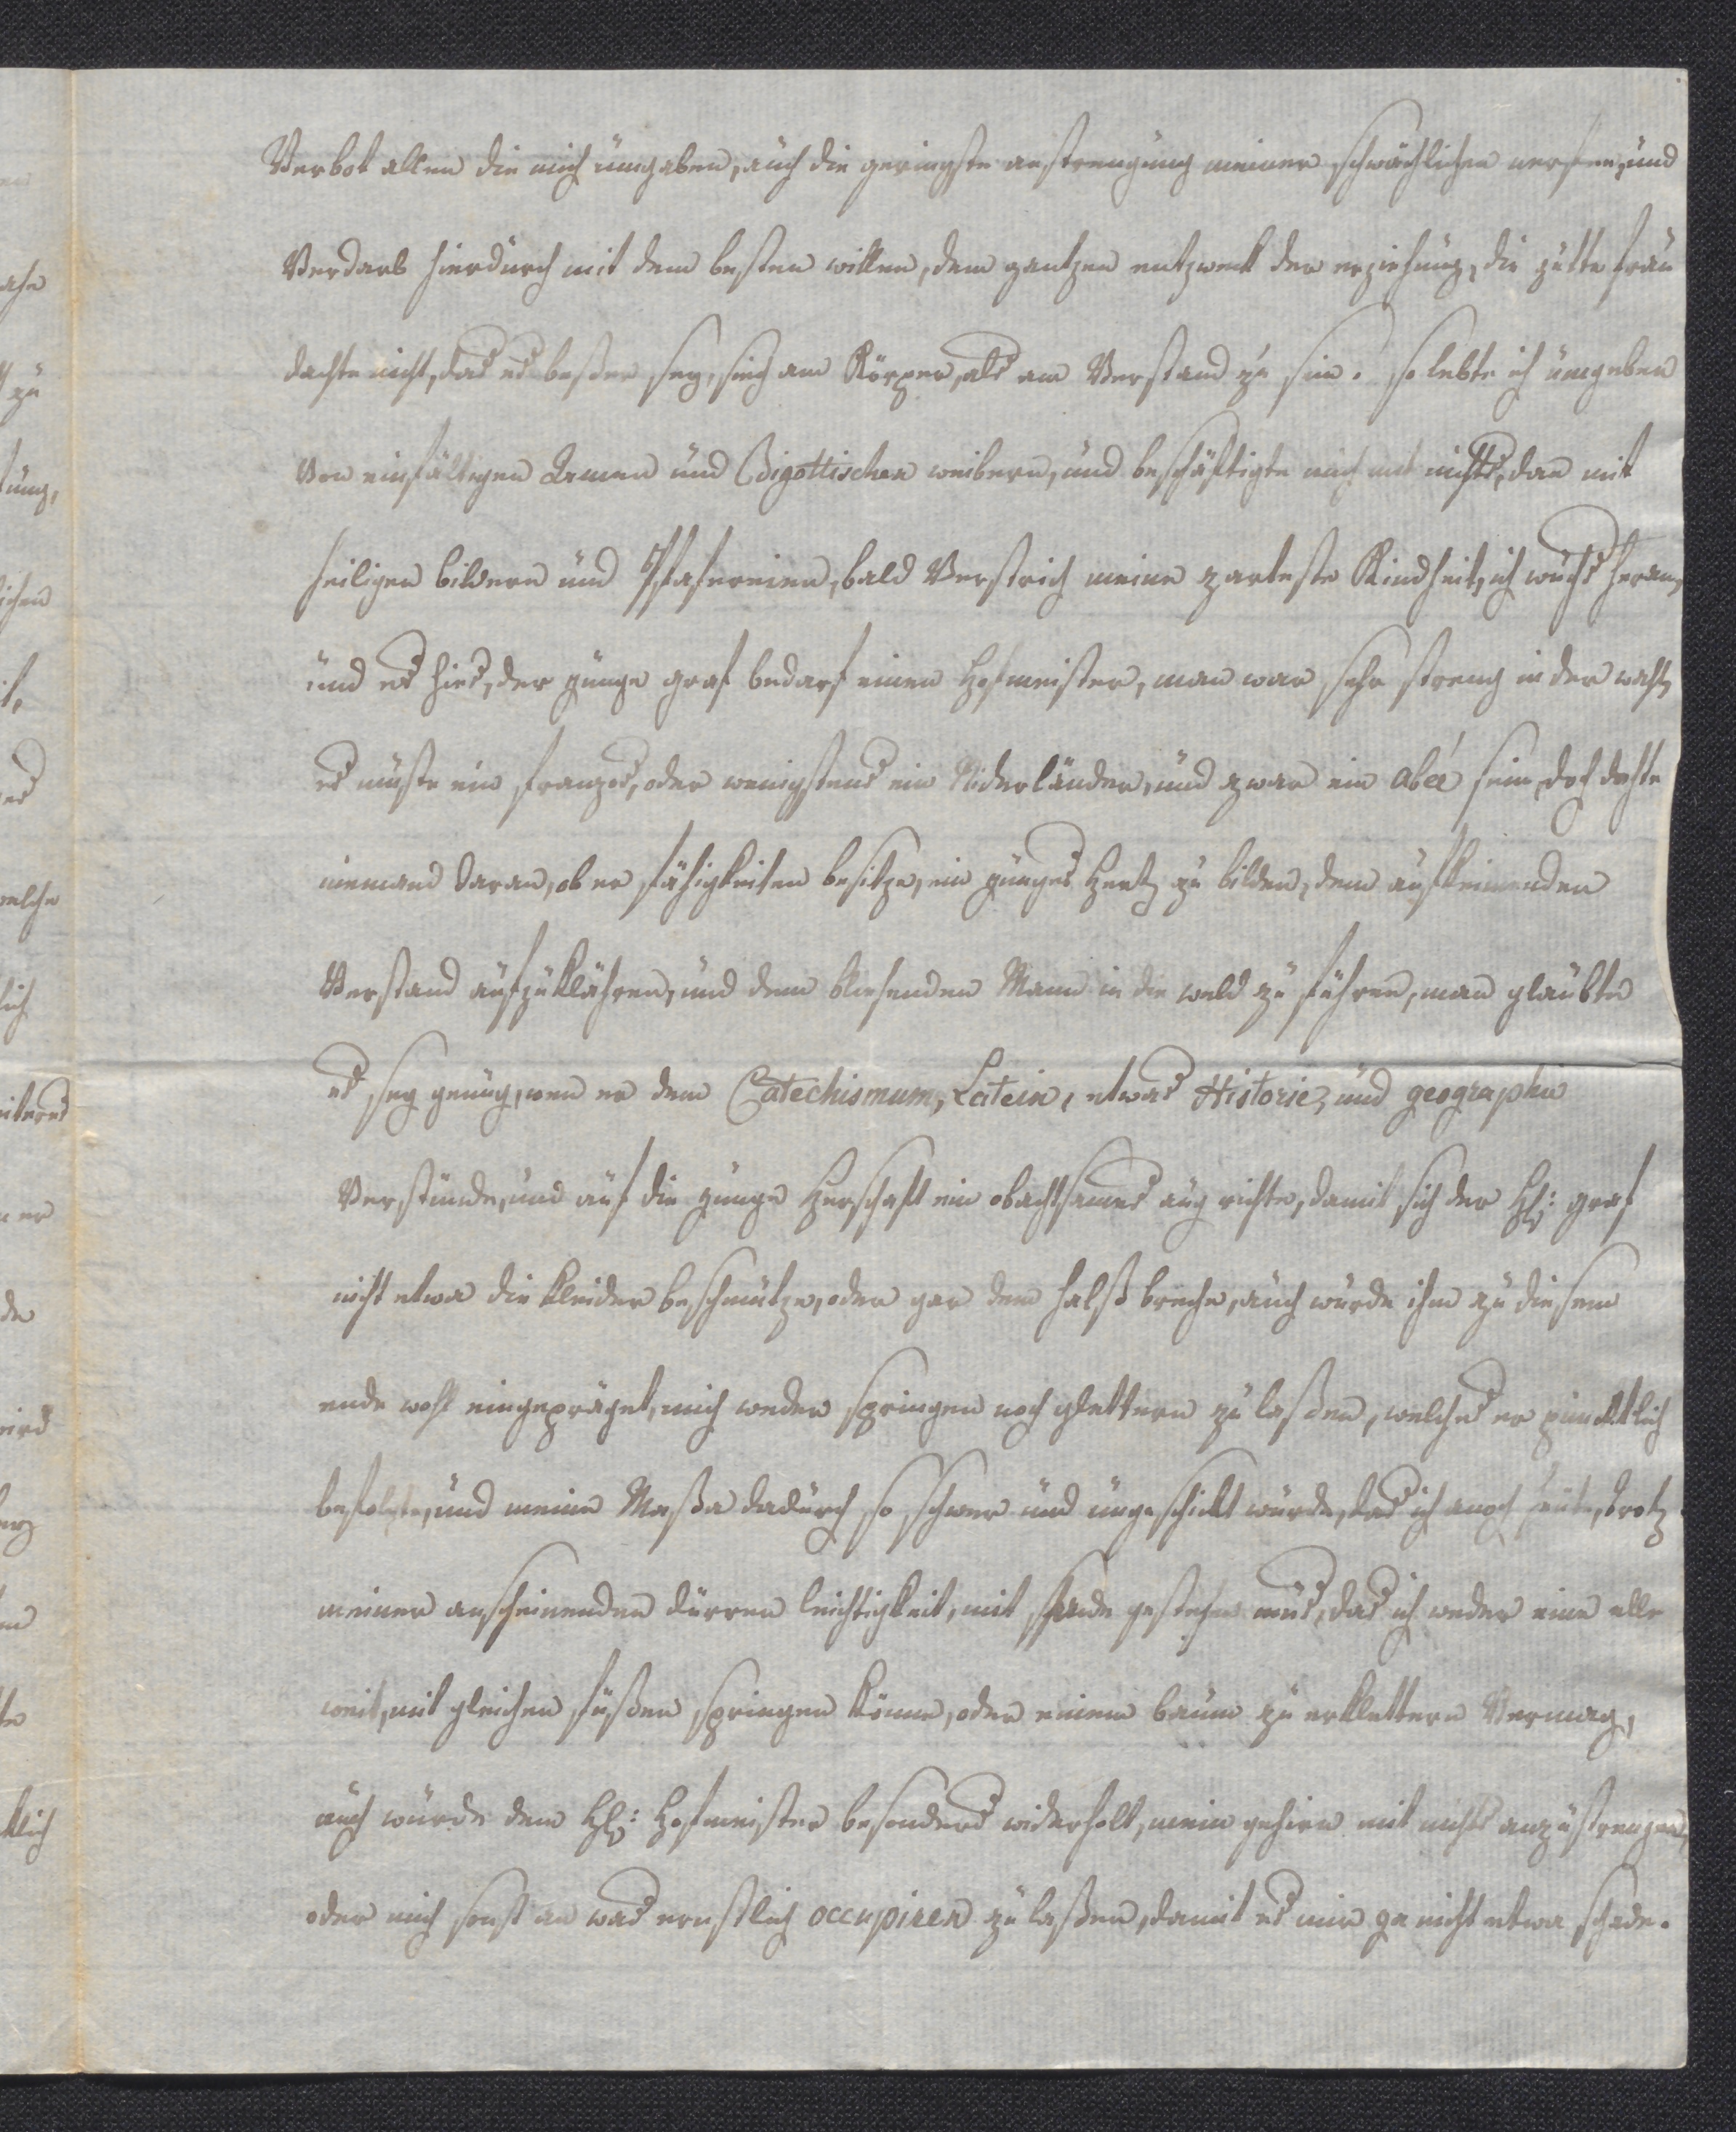 Verbot allen die mich umgaben, auch die geringste anstrengung meiner schwächlichen nerfen, und
Verdarb hierdurch mit dem besten willen, dem gantzen entzweck der erziehung, die gutte frau
dachte nicht, das es beßer sey, siech am Körper, als am Verstand zu sein. so lebte ich umgeben
Von einfältigen Amen und Bigottischen weibern, und beschäftigte mich mit nichts, dan mit
heiligen bildern und Pfafereien, bald Verstrich meine zarteste Kindheit, ich wuchs heran,
und es hies, der junge graf bedarf einen Hofmeister, man war sehr streng in der wahl,
es muste ein franzos, oder wenigstens ein Niderländer, und zwar ein abée sein, doch dachte
niemand daran, ob er fähigkeiten besitze, ein junges Hertz zu bilden, dem aufkeimenden
Verstand aufzuklähren, und dem blühenden Mann in die weld zu führen, man glaubte
es sey genug, wen er dem Catechismum, Latein, etwas Historie, und geographie
Verstünde, und auf die junge Herschaft ein obachtsames aug richte, damit sich der H: graf
nicht etwa die kleider beschmutze, oder gar dem halß breche, auch wurde ihm zu diesem
ende wohl eingepräget, mich weder springen noch glettern zu laßen, welches er pincktlich
befolgte, und meine Maßa dadurch so schwer und ungeschickt wurde, das ich anoch heute, trotz
meiner anscheinenden dürren leichtigkeit, mit schande gestehen mus, das ich weder eine elle
weit, mit gleichen füßen springen könne, oder einem baum zu erklettern Vermag,
auch wurde dem H: Hofmeister besonders widerholt, mein gehirn mit nichts anzustrengen,
oder mich sonst an was ernstlich occupiren zu laßen, damit es mir ja nicht etwa schade.